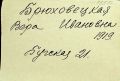 Брюховецкая
Вера Ивановна
1919
Бугская 21.